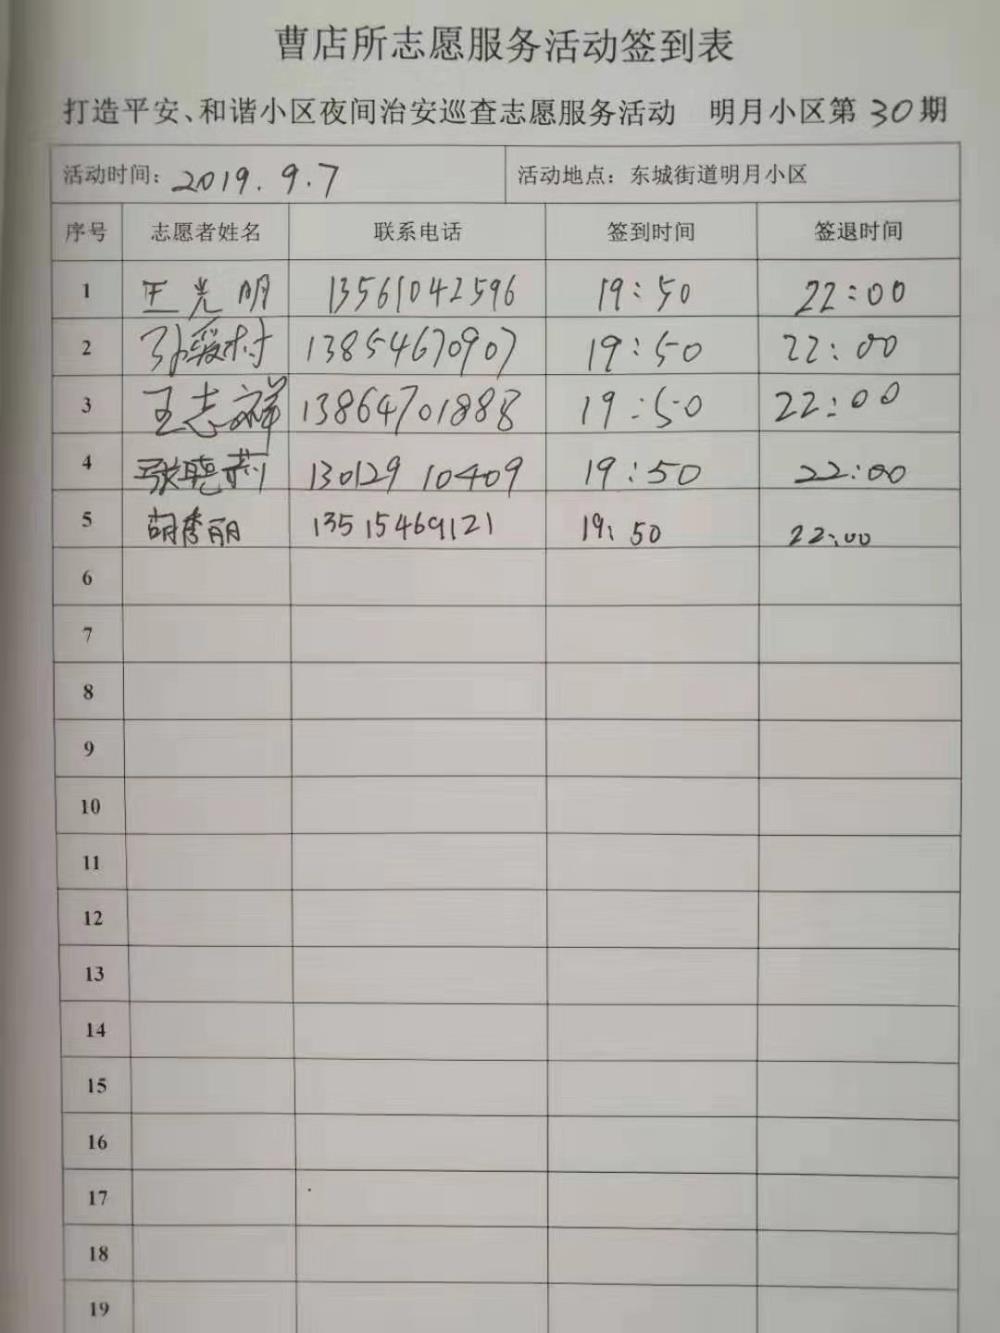 曹店所志愿服务活动签到表
打造平安、和谐小区夜间治安巡查志愿服务活动 明月小区第30期
活动时间: 2019.9.7 活动地点: 东城街道明月小区
序号 志愿者姓名 联系电话 签到时间 签退时间
1 王光明 13561042596 19:50 22:00
2 孙爱村 13854670907 19:50 22:00
3 王志祥 13864701888 19:50 22:00
4 张晓莉 13012910409 19:50 22:00
5 胡秀丽 13515469121 19:50 22:00
6
7
8
9
10
11
12
13
14
15
16
17
18
19